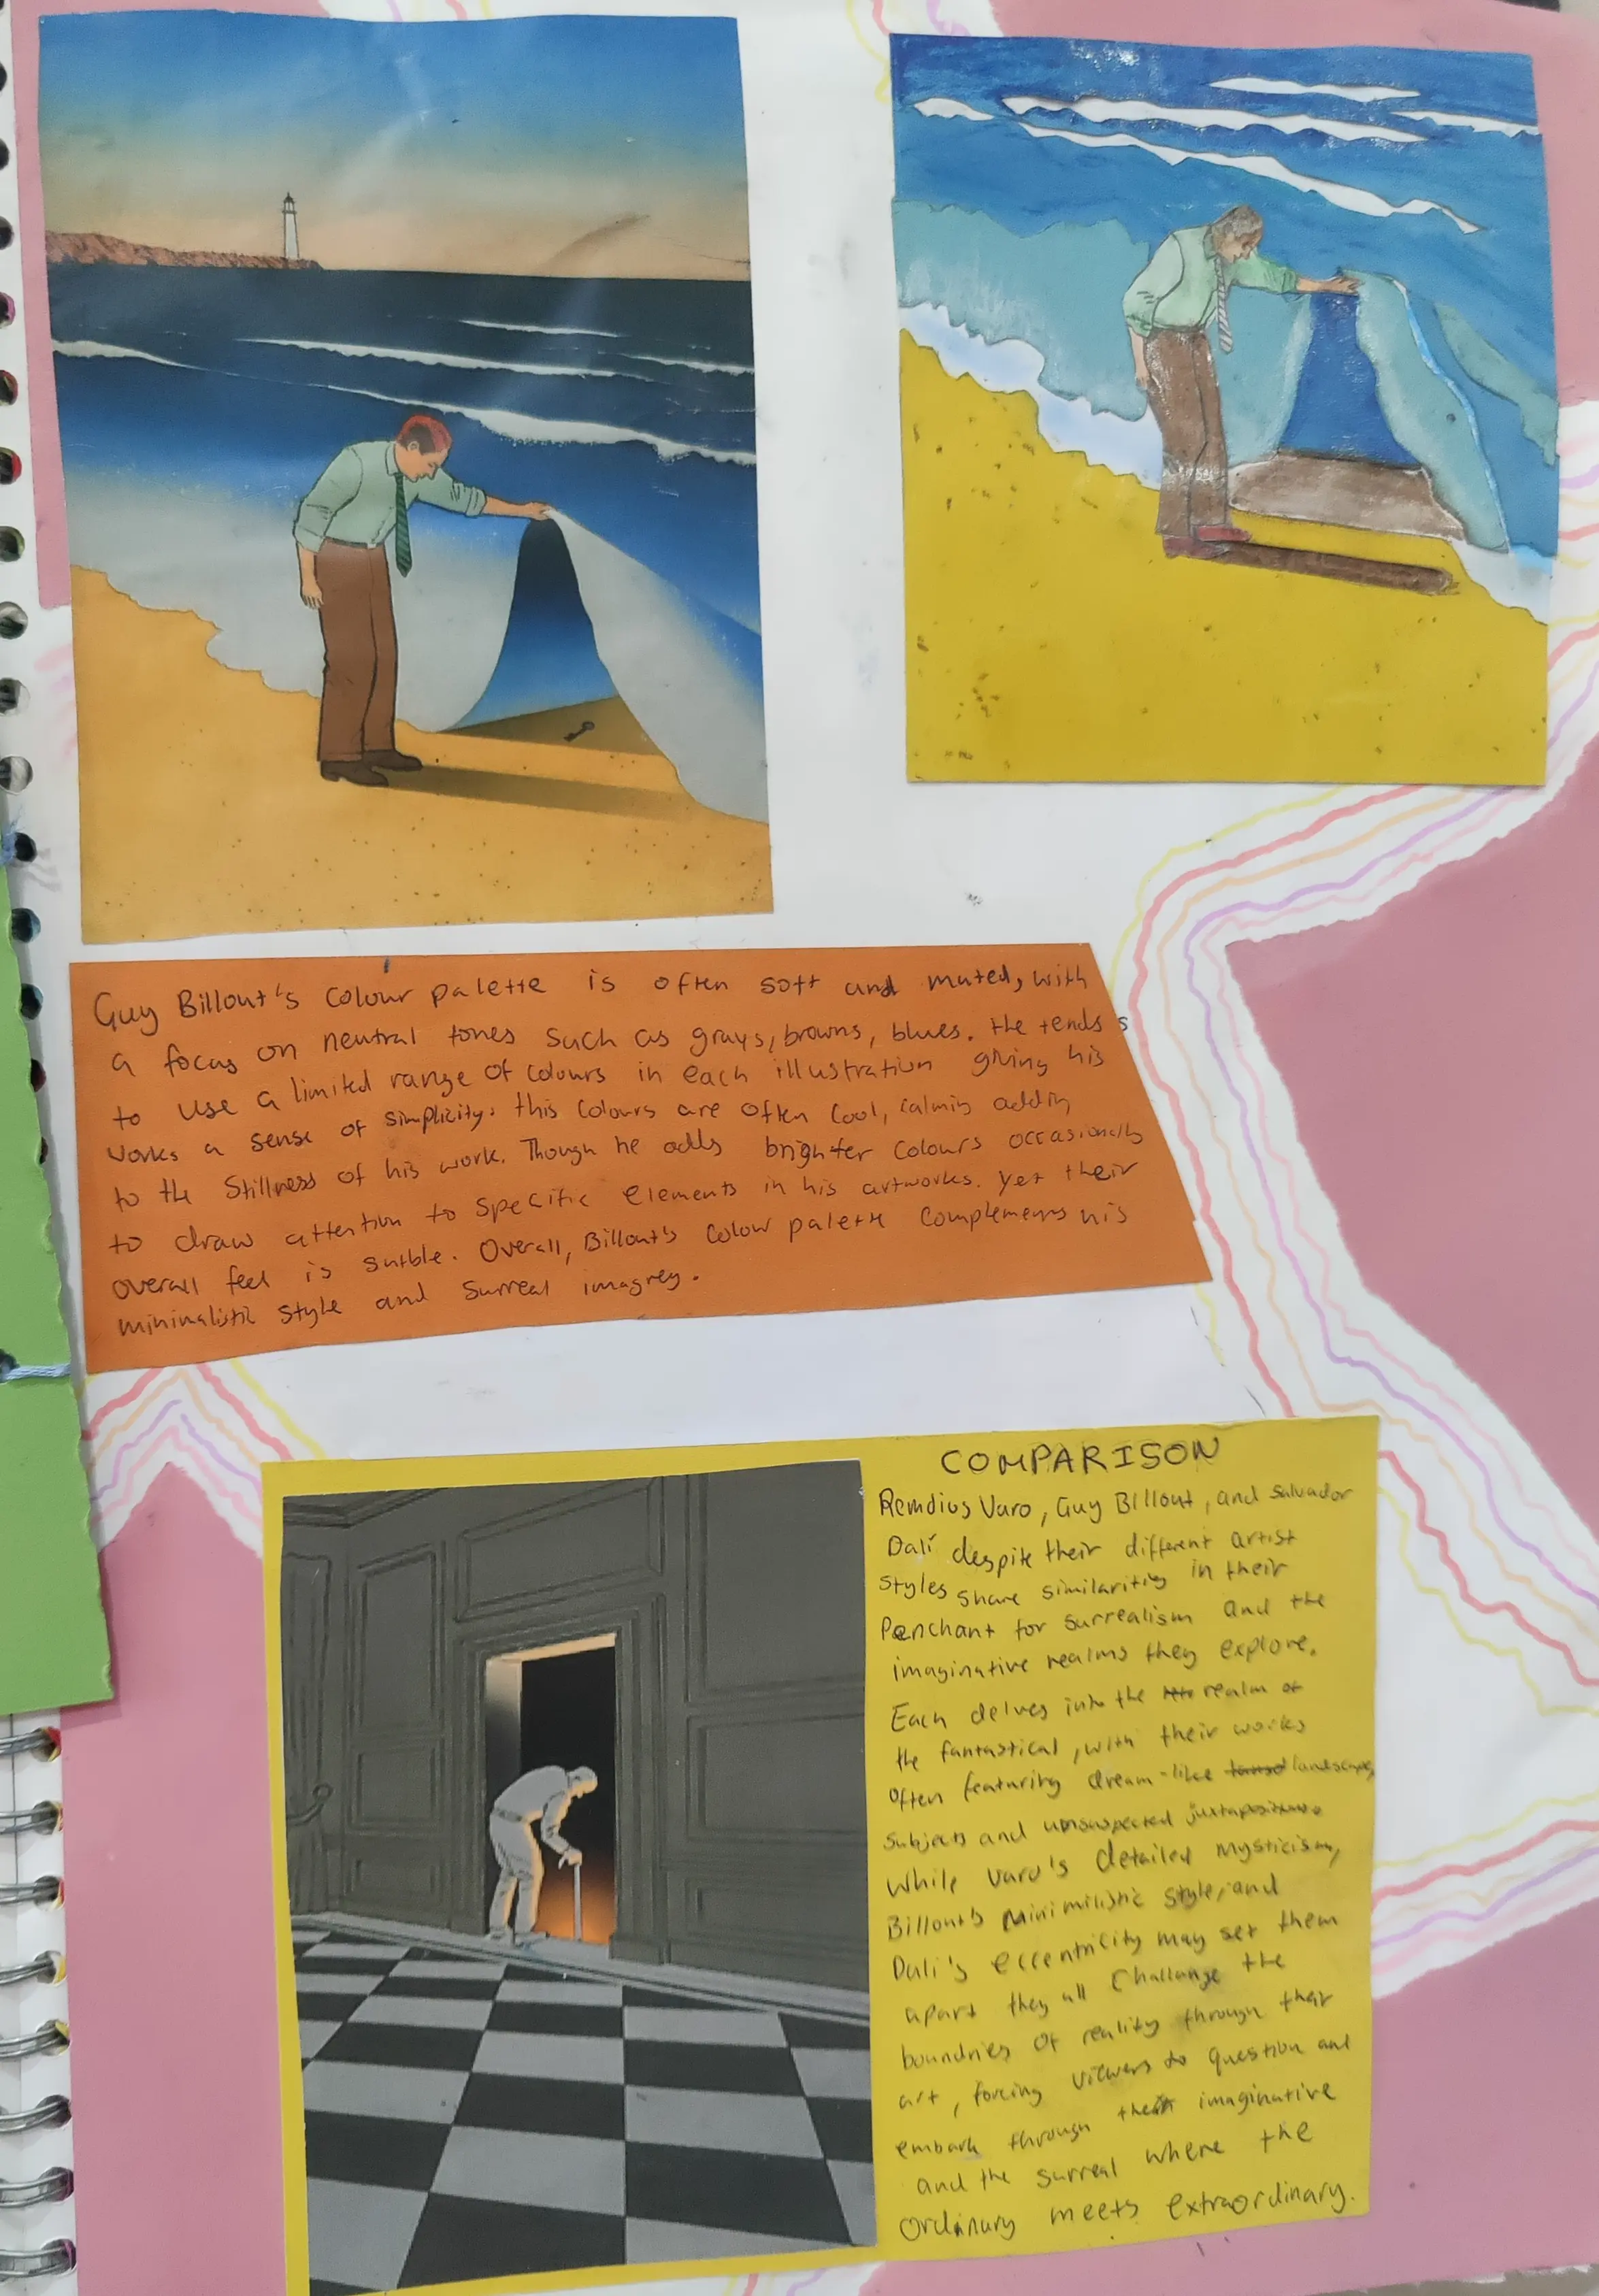 Guy Billout's colour palette is often soft and muted, with
a focus on neutral tones such as grays, browns, blues. He tends
to use a limited range of colours in each illustration giving his
works a sense of simplicity. this colours are often cool, calmin addin
to the stillness of his work. Though he adds brighter colours occasionally
to draw attention to specific elements in his artworks. Yet their
overall feel is sutble. Overall, Billout's colour palette complements his
mininalistic style and surreal imagrey.
COMPARISON
Remdius Varo, Guy Billout, and Salvador
Dalí despite their different artist
styles share similaritiy in their
Penchant for surrealism and the
imaginative realms they explore.
Each delves into the realm of
the fantastical, with their works
often featuring dream-like landscape,
subjects and unsuspected juxtapositions
While Varo's detailed mysticism,
Billout's Minimilistic style, and
Dali's eccentricity may set them
apart they all challange the
boundries of reality through their
art, forcing viewers to question and
embark through their imaginative
and the surreal where the
ordinary meets extraordinary.